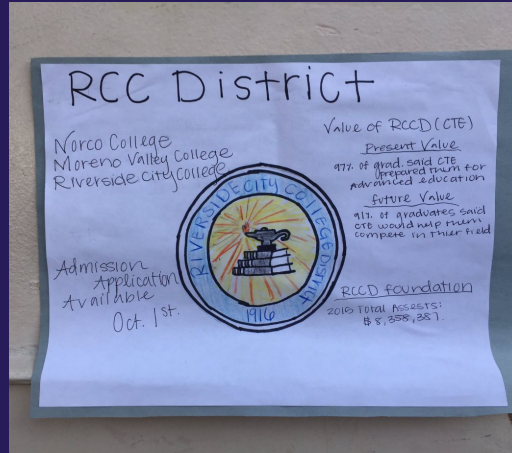 RCC District
Norco College
Moreno Valley College
Riverside City College
Admission
Application
Available
Oct. 1st.
RIVERSIDE CITY COLLEGE DISTRICT
1916
Value of RCCD (CTE)
Present Value
97% of grad. said CTE
prepared them for
Advanced education
future Value
91% of graduates said
CTE would help them
compete in thier field
RCCD foundation
Total Assests:
$8,358,387.